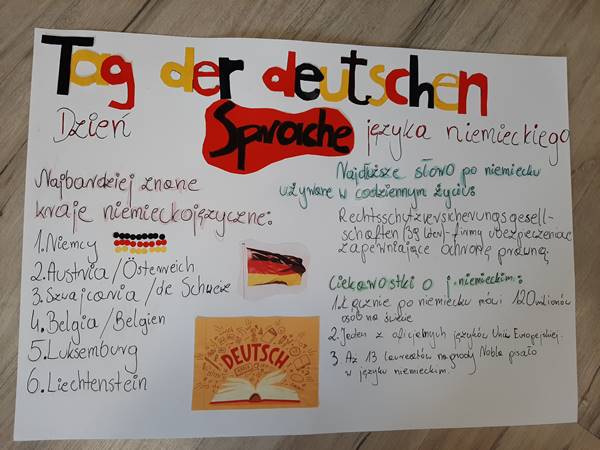 Tag der deutschen
Sprache
Dzień języka niemieckiego
Najbardziej znane
kraje niemieckojęzyczne:
1. Niemcy
2. Austria/Österreich
3. Szwajcaria/de Schweiz
4. Belgia/Belgien
5. Luksemburg
6. Liechtenstein
DEUTSCH
Najdłuższe słowo po niemiecku
używane w codziennym życiu:
Rechtsschutzversicherungsgesell-
schaften (39 liter) - firmy ubezpieczeniowe
zapewniające ochronę prawną
Ciekawostki o j. niemieckim:
1. Łącznie po niemiecku mówi 120 milionów
osób na świecie
2. Jeden z oficjalnych języków Unii Europejskiej.
3. Aż 13 laureatów nagrody Nobla pisało
w języku niemieckim.